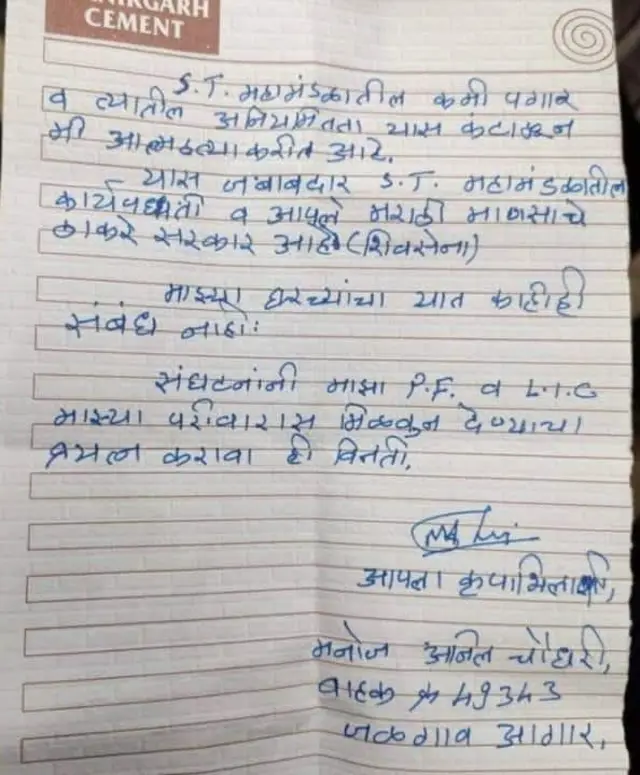 NIRGARH
CEMENT
S.T. महामंडळातील कमी पगार
व त्यातील अनियमितता यास कंटाळून
मी आत्महत्या करीत आहे.
- यास जबाबदार S.T. महामंडळातील
कार्यपध्दती व आपले मराठी माणसाचे
ठाकरे सरकार आहे (शिवसेना)
माझ्या घरच्यांचा यात काहीही
संबंध नाही.
संघटनांनी माझा P.F. व L.I.C
माझ्या परीवारास मिळवुन देण्याचा
प्रयत्न करावा ही विनंती.
आपला कृपाभिलाषी,
मनोज अनिल चौधरी,
वाहक क्र 49343
जळगाव आगार.